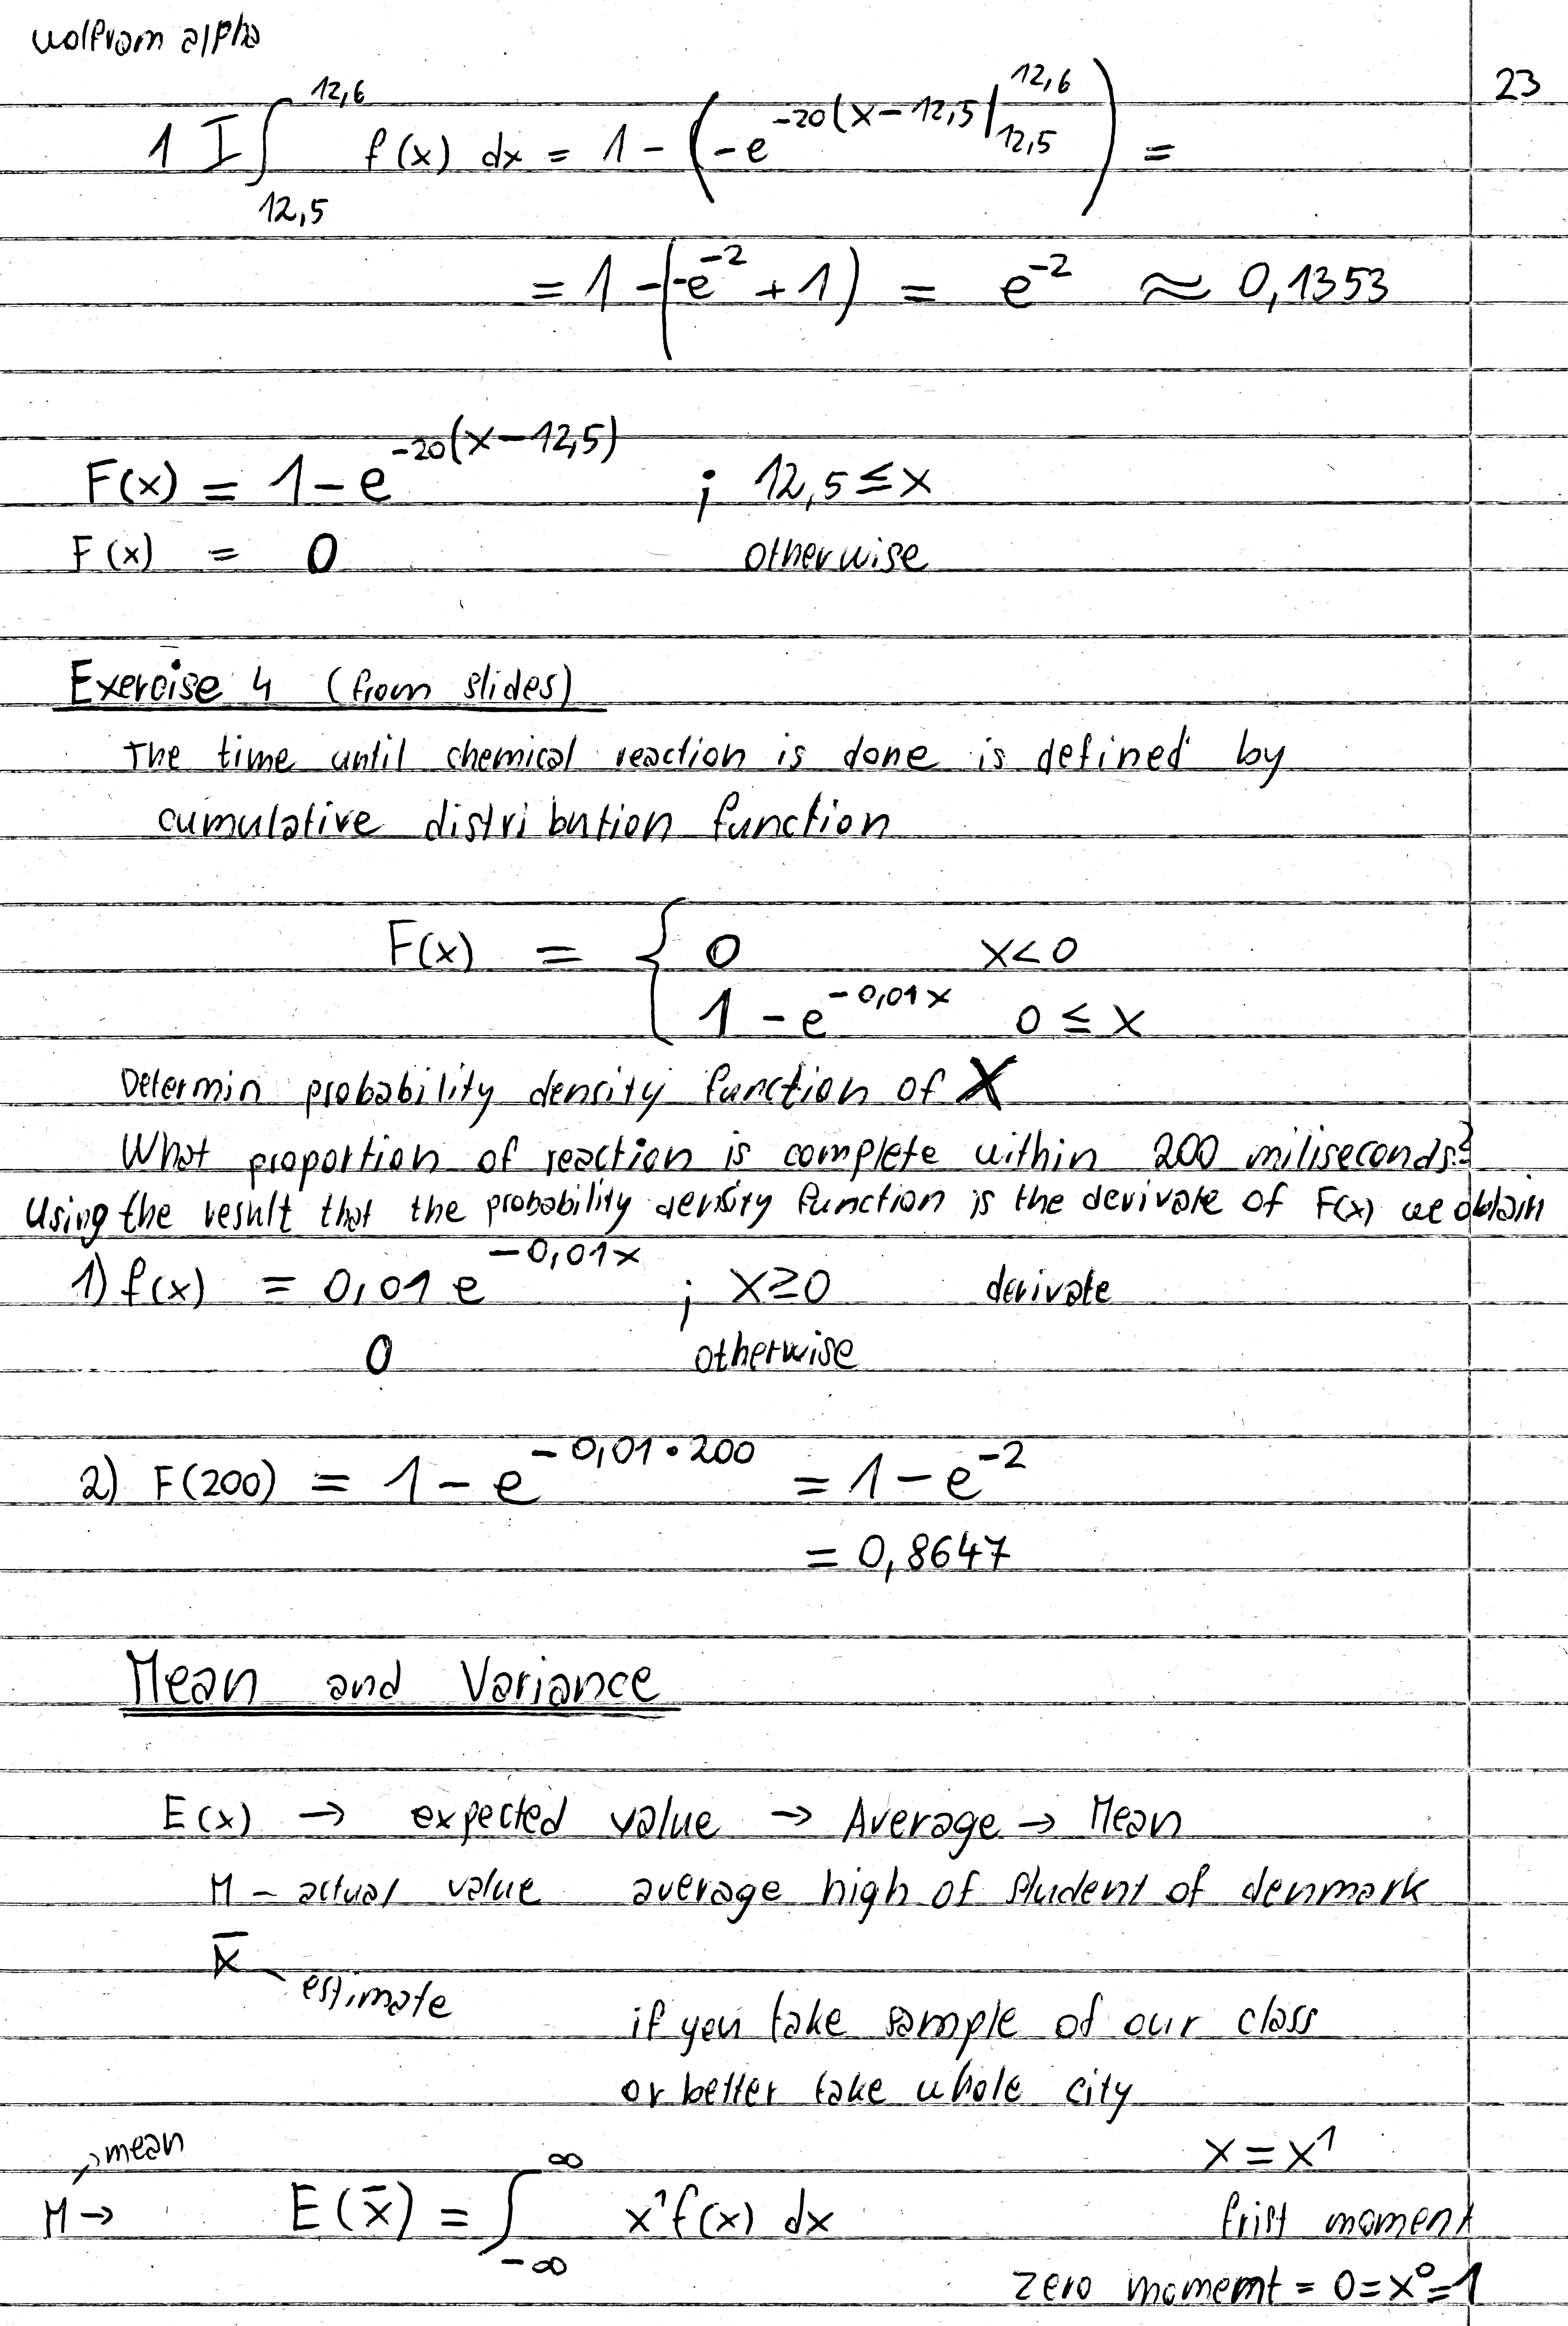 wolfram alpha
23
1 I ∫_{12,5}^{12,6} f(x) dx = 1 - (-e^{-20(x-12,5}|_{12,5}^{12,6}) =
= 1 - (-e^{-2} + 1) = e^{-2} ≈ 0,1353
F(x) = 1 - e^{-20(x-12,5)} ; 12,5 ≤ x
F(x) = 0 otherwise
Exercise 4 (from slides)
The time until chemical reaction is done is defined by
cumulative distribution function
F(x) = { 0 x<0
1 - e^{-0,01x} 0 ≤ x
Determin probability density function of X
What proportion of reaction is complete within 200 miliseconds?
Using the result that the probability density function is the derivate of F(x) we obtain
1) f(x) = 0,01 e^{-0,01x} ; x≥0 derivate
0 otherwise
2) F(200) = 1 - e^{-0,01•200} = 1 - e^{-2}
= 0,8647
Mean and Variance
E(x) → expected value → Average → Mean
M - actual value average high of student of denmark
x̄ estimate
if you take sample of our class
or better take whole city
mean
x = x^1
M → E(x̄) = ∫_{-∞}^{∞} x^1 f(x) dx frist moment
zero momemt = 0 = x^0 = 1